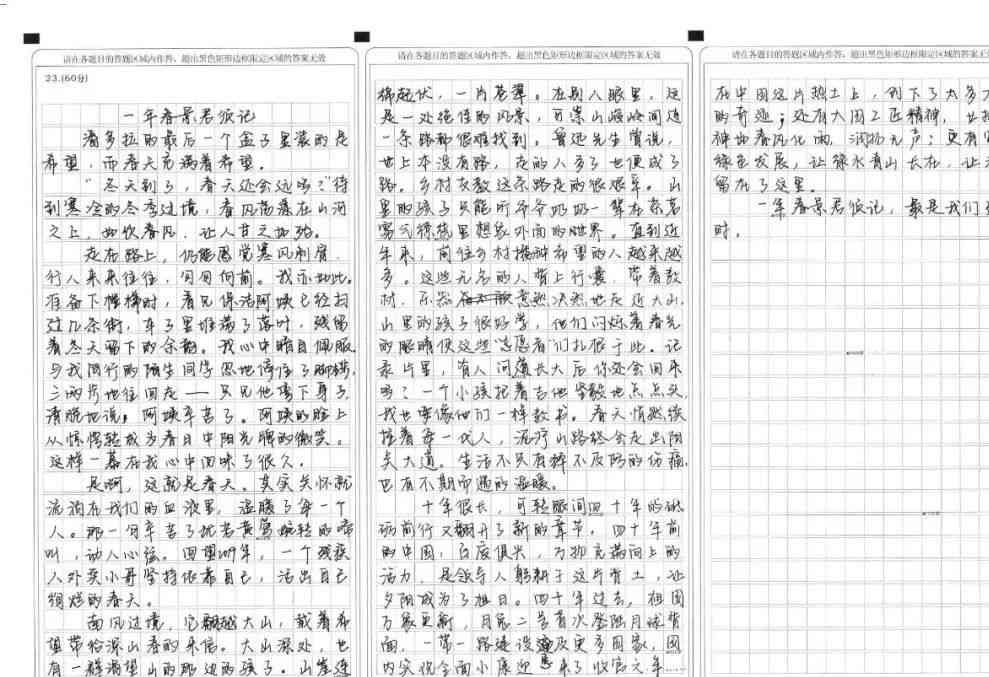 请在各题目的答题区域内作答，超出黑色矩形边框限定区域的答案无效
23.(60分)
一年春景君须记
潘多拉的最后一个盒子里装的是
希望，而春天充满着希望。
“冬天到了，春天还会远吗？”待
到寒冷的冬季过境，春风荡漾在山河
之上，如饮春风，让人甘之如饴。
走在路上，仍能感觉寒风刺骨，
行人来来往往，匆匆向前。我亦如此。
准备下楼梯时，看见保洁阿姨已经扫
过几条街，车子里堆满了落叶，残留
着冬天留下的余韵。我心中暗自佩服，
与我同行的陌生同学忽地停住了脚步，
三两步地往回走——只见他弯下身子，
清脆地说：阿姨辛苦了。阿姨的脸上
从惊愕转成为春日中阳光般的微笑。
这样一幕在我心中回味了很久。
是啊，这就是春天。其实关怀就
流淌在我们的血液里，温暖了每一个
人。那一句辛苦了犹若黄莺婉转的啼
叫，动人心弦。回望2019年，一个残疾
人外卖小哥坚持依靠自己，活出自己
绚烂的春天。
面风过境，它翻越大山，载着希
望带给深山春的来信。大山深处，也
有一群渴望山的那边的孩子。山峦连
请在各题目的答题区域内作答，超出黑色矩形边框限定区域的答案无效
绵起伏，一片苍翠。在别人眼里，这
是一处绝佳的风景，可崇山峻岭间连
一条路都很难找到。鲁迅先生曾说，
世上本没有路，走的人多了也便成了
路。乡村支教这条路走的很艰辛。山
里的孩子只能听爷爷奶奶一辈在
想象外面的世界。直到近
年来，前往乡村播种希望的人越来越
多。这些无名的人背上行囊，带着教
材，毅然决然地走进大山。
山里的孩子很好学，他们闪烁着春光
的眼睛使这些志愿者们扎根于此。记
录片里，有人问孩长大后你还会回来
吗？一个小孩抱着吉他坚毅地点点头，
我也要像他们一样教书。春天悄然续
接着每一代人，泥泞山路终会走出阳
关大道。生活不只有猝不及防的伤痛，
也有不期而遇的温暖。
十年很长，可转眼间四十年的砥
砺前行又翻开了新的章节，四十年前
的中国，百废俱兴，万物充满向上的
活力，是领导人躬耕于这片青土，让
夕阳成为了旭日。四十年过去，祖国
万象更新，月球二号首次登陆月球背
面，一带一路建设遍及更多国家，国
内实现全面小康迎来了收官之年……
请在各题目的答题区域内作答，超出黑色矩形边框限定区域的答案无
在中国这片热土上，创下了太多
的奇迹；还有大国工匠精神，
神如春风化雨，润物无声；更有
绿色发展，让绿水青山长在，让
留在了这里。
一年春景君须记，最是我们
时。